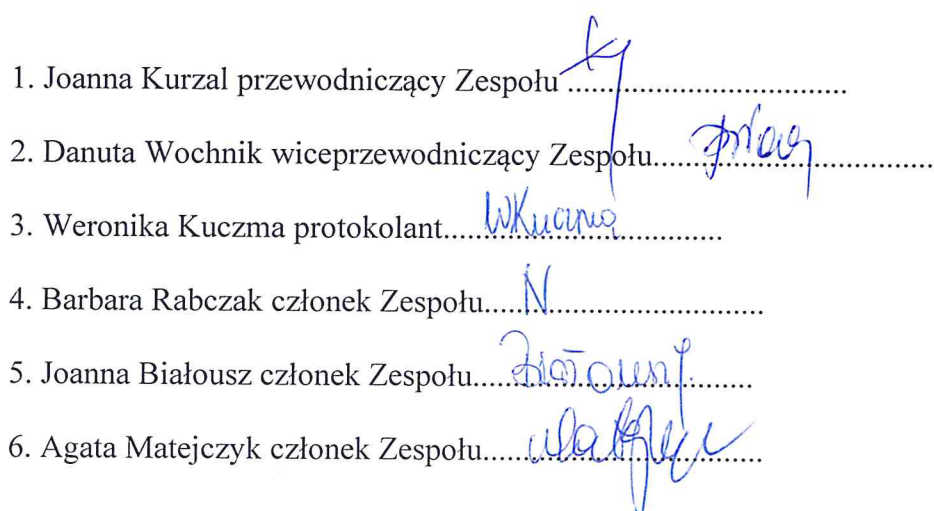 1. Joanna Kurzal przewodniczący Zespołu ....................................
2. Danuta Wochnik wiceprzewodniczący Zespołu....................................
3. Weronika Kuczma protokolant.... WKuczma ....................
4. Barbara Rabczak członek Zespołu..... N ............................
5. Joanna Białousz członek Zespołu....................................
6. Agata Matejczyk członek Zespołu....................................